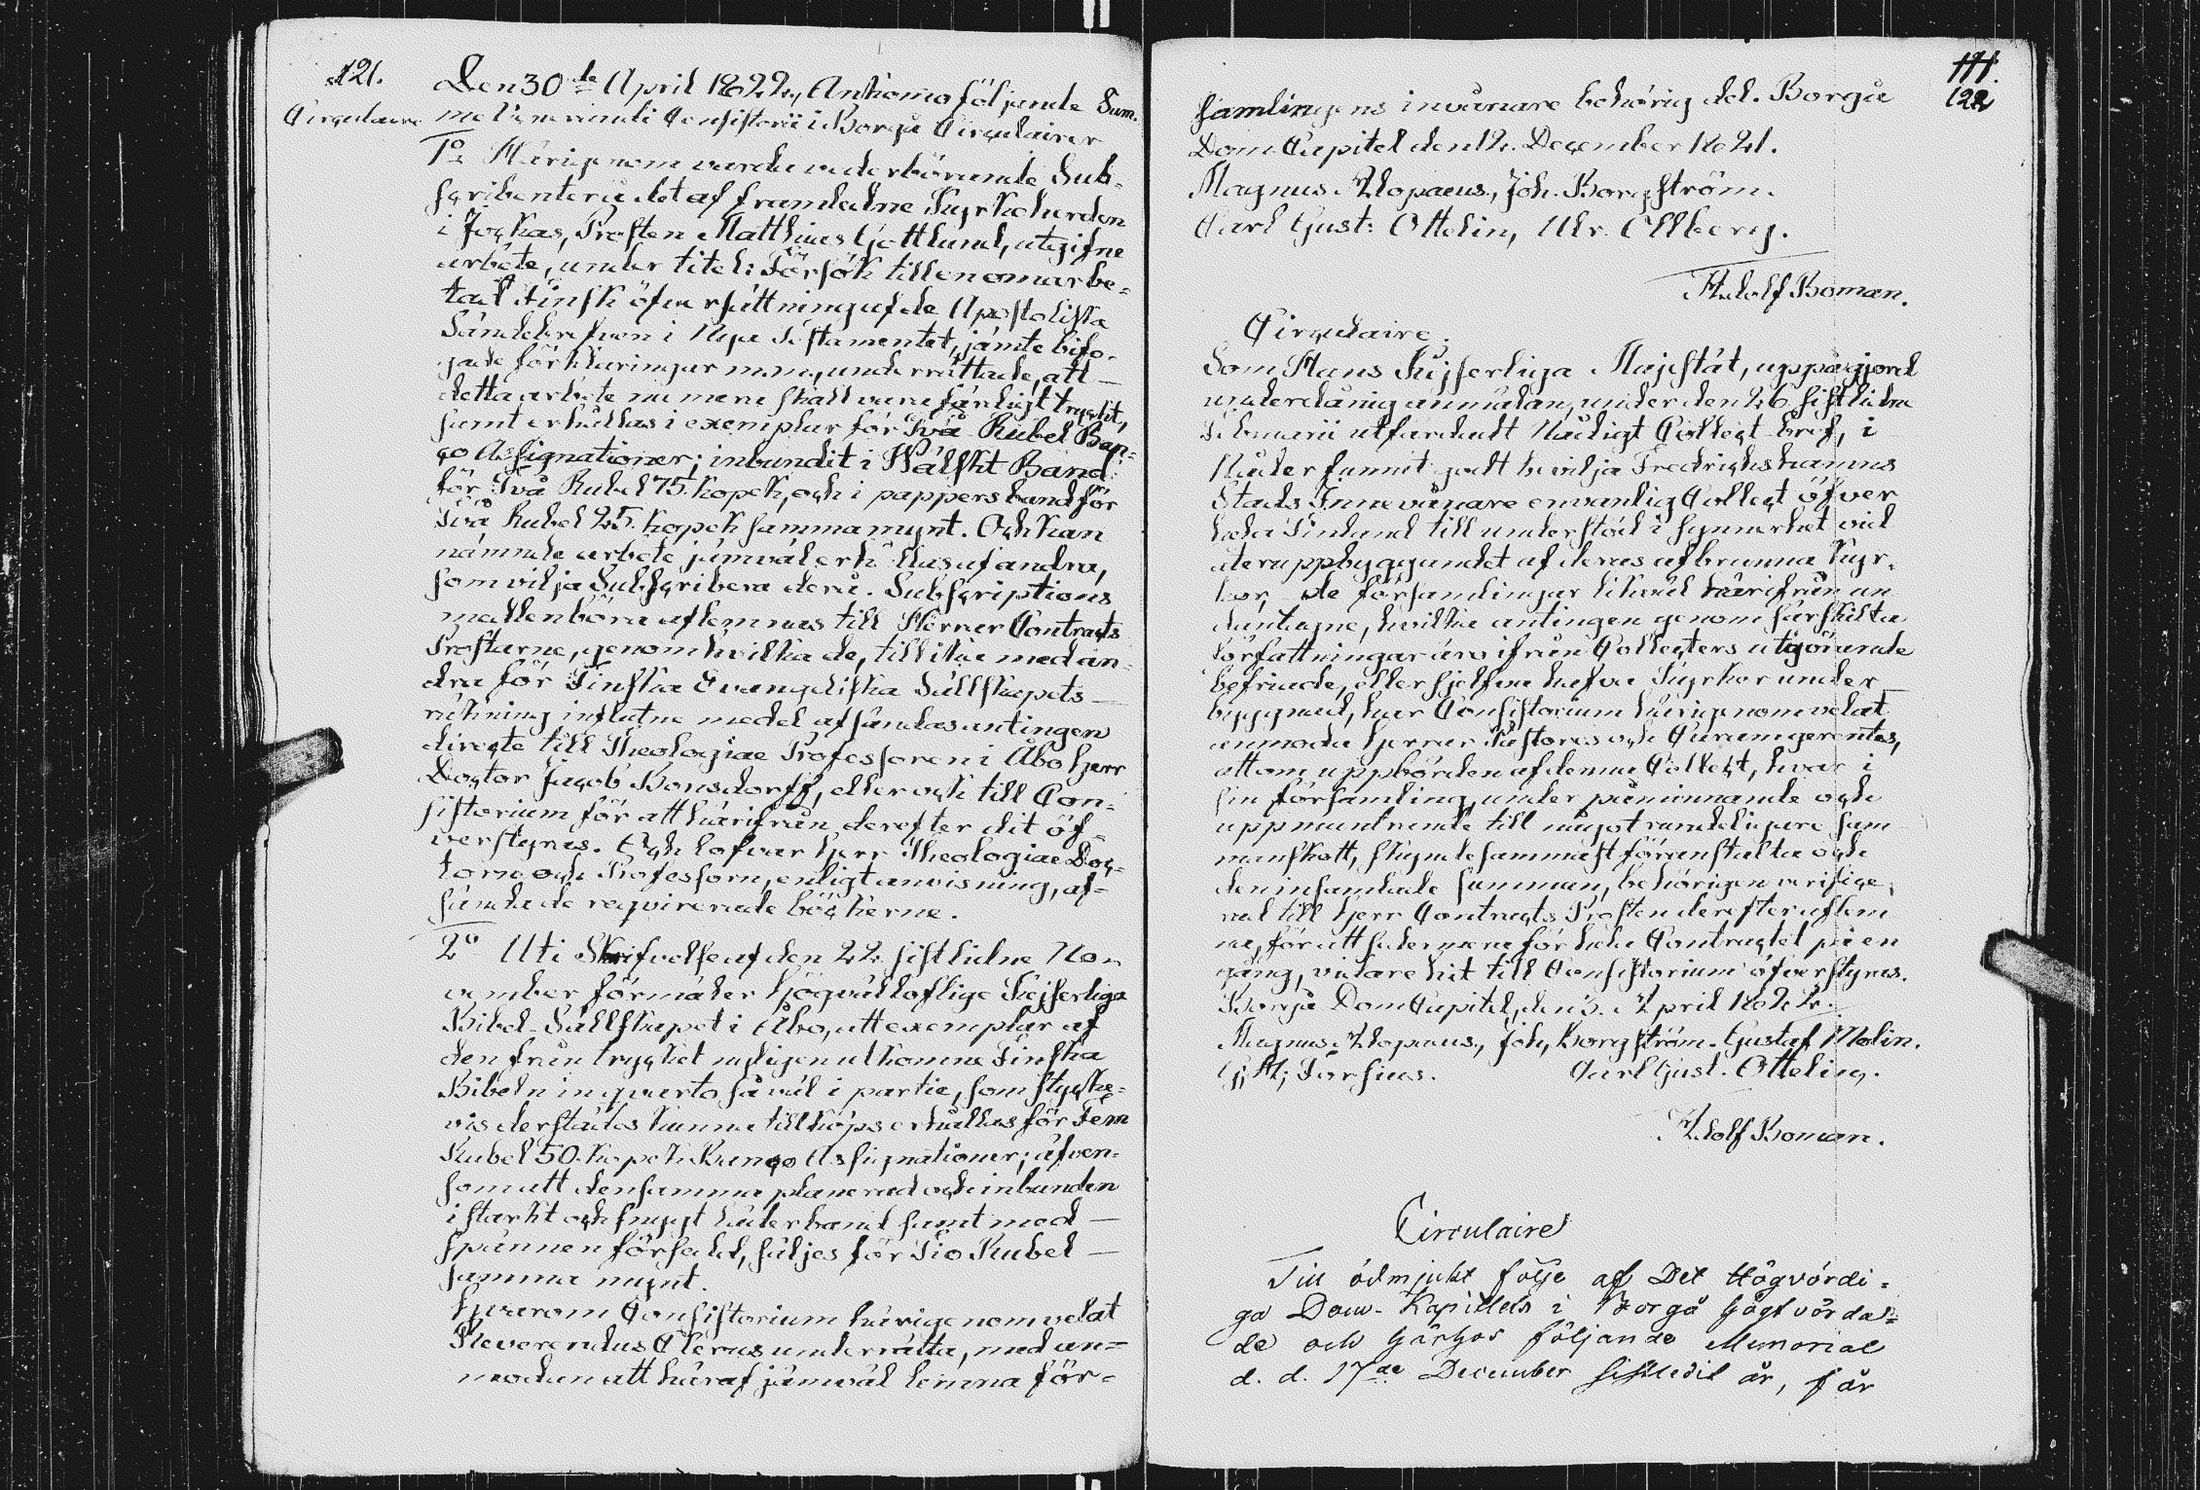 121.
Circulaire
Den 30de April 1822, Ankomo följande Sum-
me Venerandi Consistorii i Borgå Circulairer
1o Härigenom varda vederbörande Sub-
scribenter å det af framledne Kyrkoherden
i Jockas, Prosten Matthias Gottlund, utgifne
arbete, under titel: Försök till en omarbe-
tad Finsk öfversättning af de Apostoliska
Sändebrefven i Nya Testamentet, jämte bifo-
gade förklaringar m.m., underrättade, att
detta arbete nu mera skall vara färdigt tryckt,
samt erhållas i exemplar för Två Rubel Ban-
co Assignationer; inbundit i Wälskt Band
för Två Rubel 75. kopek, och i pappersband för
Två Rubel 25. kopek samma mynt. Och kan
nämnde arbete jämväl erhållas af andra,
som vilja Subscribera derå. Subscriptions
medlen böra aflemnas till Herrar Contracts
Prostarne, genom hvilka de, tillika med an-
dra för Finska Evangeliska Sällskapets
räkning influtne medel afsändas antingen
directe till Theologiae Professoren i Åbo Herr
Doctor Jacob Bonsdorff, eller och till Con-
sistorium för att härifrån derefter dit öf-
verstyras. Och lofvar Herr Theologiae Doc-
torn och Professorn, enligt anvisning, af-
sända de reqvirerade böckerne.
2o Uti Skrifvelse af den 22 sistlidne No-
vember förmäler Högvälloflige Kejserliga
Bibel-Sällskapet i Åbo, att exemplar af
den från trycket nyligen utkomne Finska
Bibeln in qvarto så väl i partie, som stycke-
vis derstädes kunna till köps erhållas för Fem
Rubel 50. kopek Banco Assignationer; äfven-
som att densamma planerad och inbunden
i starkt och snyggt läderband samt med
spännen försedd, säljes för Tio Rubel
samma mynt.
Hvarom Consistorium härigenom velat
Reverendus Clerus underrätta, med an-
modan att häraf jämväl lemna för-
111.
122
samlingens invånare behörig del. Borgå
Dom Capitel den 12. December 1821.
Magnus Alopaeus, Joh. Borgström.
Carl Gust: Ottelin, Ulr. Ollberg.
Adolf Boman.
Circulaire,
Som Hans Kejserliga Majestät, uppå gjord
underdånig anmälan, under den 26 sistlidne
Februarii utfärdadt Nådigt Collect bref, i
Nåder funnit godt bevilja Fredrickshamns
Stads Innevånare en vanlig Collect öfver
hela Finland till understöd i synnerhet vid
återuppbyggandet af deras afbrunna Kyr-
kor, de församlingar likväl härifrån un-
dantagne, hvilka antingen genom särskilta
Författningar äro ifrån Collecters utgörande
befriade, eller sjelfva hafva Kyrkor under
byggnad, har Consistorium härigenom velat
anmoda Herrar Pastores och Curam gerentes,
att om uppbörden af denna Collect, hvar i
sin församling, under påminnande och
uppmuntrande till något rundeligare sam-
manskott, skyndesammast föranstalta och
den insamlade summan, behörigen verifice-
rad till Herr Contracts Prosten derefter aflem-
na, för att sedermera för hela Contractet på en
gång, vidare hit till Consistorium öfverstyras.
Borgå DomCapitel, den 3. April 1822.
Magnus Alopaeus, Joh, Borgström. Gustaf Molin.
G; M; Forsius. Carl Gust. Ottelin.
Adolf Boman.
Circulaire
Till ödmjukt följe af Det Högvördi-
ga Dom-Kapitlets i Borgå högtvörda-
de och härhos följande Memorial
d. d. 17de December sistledit år, får